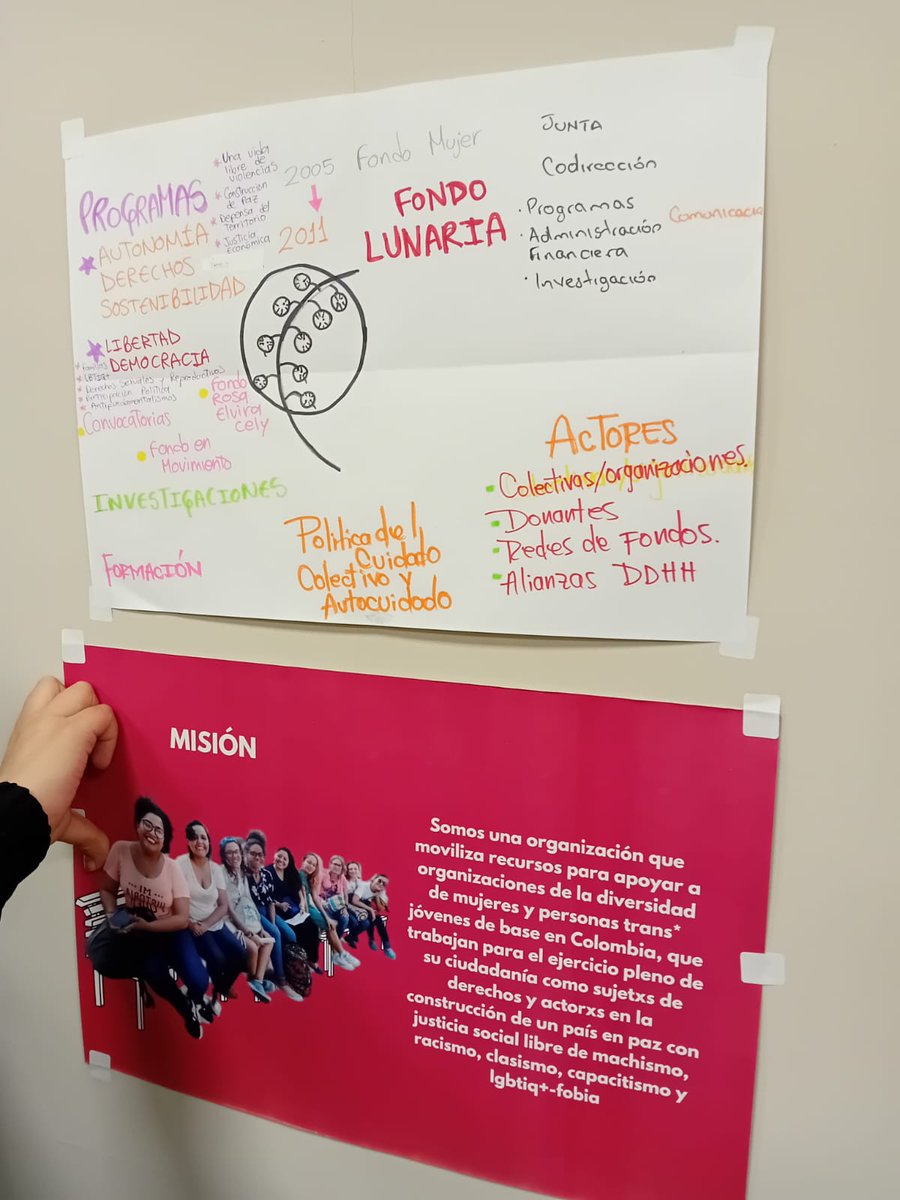 PROGRAMAS
* Una vida
libre de
violencias
* Construcción
de Paz
* Defensa del
Territorio
* Justicia
Económica
AUTONOMÍA
DERECHOS
SOSTENIBILIDAD
LIBERTAD
DEMOCRACIA
* LBTIQ+
* Derechos Sexuales y Reproductivos
* Participación Política
* Antifundamentalismos
Convocatorias
Fondo
Rosa
Elvira
Cely
Fondo en
Movimiento
INVESTIGACIONES
FORMACIÓN
2005 Fondo Mujer
2011
FONDO
LUNARIA
JUNTA
Codirección
· Programas
· Administración
Financiera
· Investigación
Comunicacio
Política del
Cuidado
Colectivo y
Autocuidado
ACTORES
Colectivas/organizaciones.
Donantes
Redes de Fondos.
Alianzas DDHH
MISIÓN
Somos una organización que
moviliza recursos para apoyar a
organizaciones de la diversidad
de mujeres y personas trans*
jóvenes de base en Colombia, que
trabajan para el ejercicio pleno de
su ciudadanía como sujetxs de
derechos y actorxs en la
construcción de un país en paz con
justicia social libre de machismo,
racismo, clasismo, capacitismo y
lgbtiq+-fobia